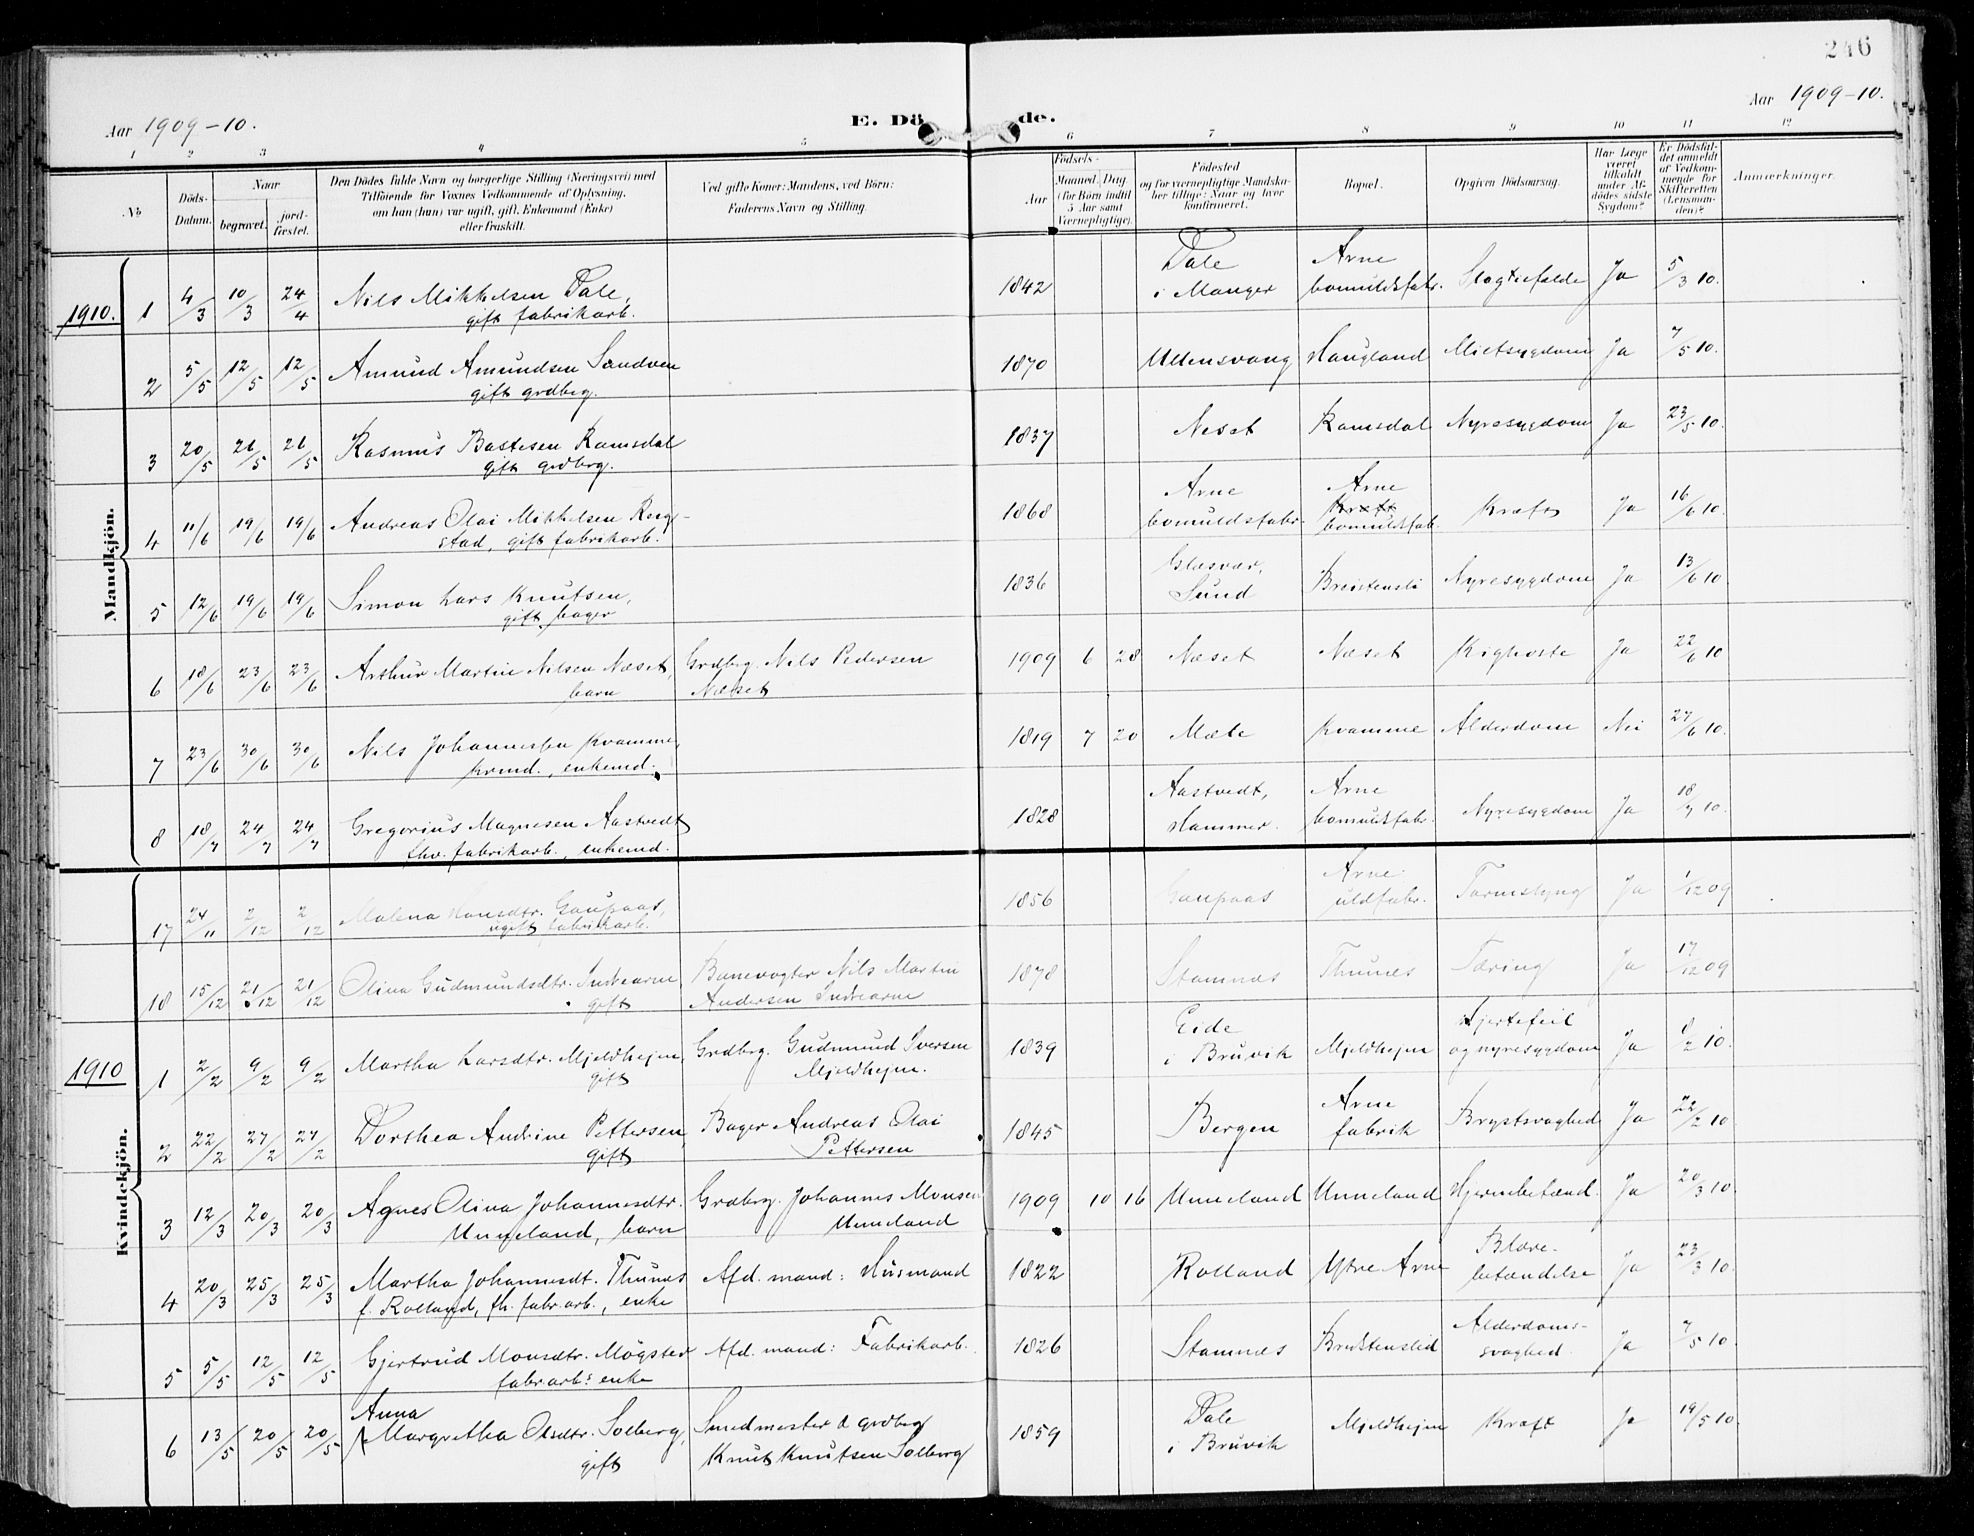 246
Aar 1909-10.
E. Dö de.
Aar 1909-10.
1 2 3 4 5 6 7 8 9 10 11 12
No
Döds-Datum.
Naar
begravet.
jord-fæstet.
Den Dödes fulde Navn og borgerlige Stilling (Næringsvei) med
Tilföiende for Voxnes Vedkommende af Oplysning,
om han (hun) var ugift, gift, Enkemand (Enke)
eller fraskilt.
Ved gifte Koner: Mandens, ved Börn:
Faderens Navn og Stilling.
Födsels-
Aar
Maaned. Dag
(for Börn indtil
5 Aar samt
Værnepligtige).
Födested
og for værnepligtige Mandska-
ber tillige: Naar og hvor
konfirmeret.
Bopæl.
Opgiven Dödsaarsag.
Har Læge
været
tilkaldt
under Af-
dödes sidste
Sygdom?
Er Dödsfal-
det anmeldt
af Vedkom-
mende for
Skifteretten
(Lensman-
den)?
Anmærkninger.
Mandkjön.
1910. 1 4/3 10/3 24/4 Nils Mikkelsen Dale, gift fabrikarb. 1842 Dale i Manger Arne bomuldsfabr. Slagtilfælde Ja 5/3 10.
2 5/5 12/5 12/5 Amund Amundsen Sandven gift grdbrg. 1870 Ullensvang Haugland Ja 7/5 10.
3 20/5 26/5 26/5 Rasmus Bastesen Ramsdal gift grdbrg. 1837 Neset Ramsdal Nyresygdom Ja 23/5 10.
4 11/6 19/6 19/6 Andreas Olai Mikkelsen stad, gift fabrikarb. 1868 Arne bomuldsfabr. Arne bomuldsfab. Kræft Ja 16/6 10.
5 12/6 19/6 19/6 Simon Lars Knutsen, gift bager 1836 Glesvær, Sund Nyresygdom Ja 13/6 10
6 18/6 23/6 23/6 Arthur Martin Nilsen Næset, barn Grdbrg. Nils Pedersen Næset 1909 6 28 Næset Næset Kighoste Ja 22/6 10
7 23/6 30/6 30/6 Nils Johannesen Kvamme, enkemd. 1819 7 20 Mæle Kvamme Alderdom Nei 27/6 10.
8 18/7 24/7 24/7 Gregorius Magnesen Aastvedt fhv. fabrikarb., enkemd. 1828 Aastvedt, Hammer. Arne bomuldsfabr. Nyresygdom Ja 18/7 10.
Kvindekjön.
17 24/11 2/12 2/12 Malena Hansdtr. Gaupaas, ugift fabrikarb. 1856 Gaupaas Arne uldfabr. Tarmslyng Ja 1/12 09
18 15/12 21/12 21/12 Olina Gudmundsdtr. Indrearne gift Banevogter Nils Martin Andersen Indrearne 1878 Stamnes Thunes Tæring Ja 17/12 09
1910 1 2/2 9/2 9/2 Martha Larsdtr. Mjeldhejm, gift Grdbrg. Gudmund Iversen Mjeldhejm. 1839 Eide i Bruvik Mjeldhejm Hjertefeil og nyresygdom Ja 8/2 10.
2 22/2 27/2 27/2 Dorthea Andrine Pettersen, gift Bager Andreas Olai Pettersen 1845 Bergen Arne fabrik Brystsvaghed Ja 22/2 10
3 12/3 20/3 20/3 Agnes Olina Johannesdtr. Unneland, barn Grdbrg. Johannes Monsen Unneland 1909 10 16 Unneland Unneland Hjernebetænd. Ja 20/3 10.
4 20/3 25/3 25/3 Martha Johannesdt. Thunes f. Rolland, fh. fabr.arb., enke Afd. mand: Husmand 1822 Rolland Ytre Arne Blære-betændelse Ja 23/3 10.
5 5/5 12/5 12/5 Gjertrud Monsdtr. Mögster fabr.arbs enke Afd. mand: Fabrikarb. 1826 Stamnes Alderdoms-svaghed. Ja 7/5 10.
6 13/5 20/5 20/5 Anna Margretha Olsdtr. Solberg, gift Smedmester & grdbrg Knut Knutsen Solberg 1859 Dale i Bruvik Mjeldhejm Kræft Ja 19/5 10.